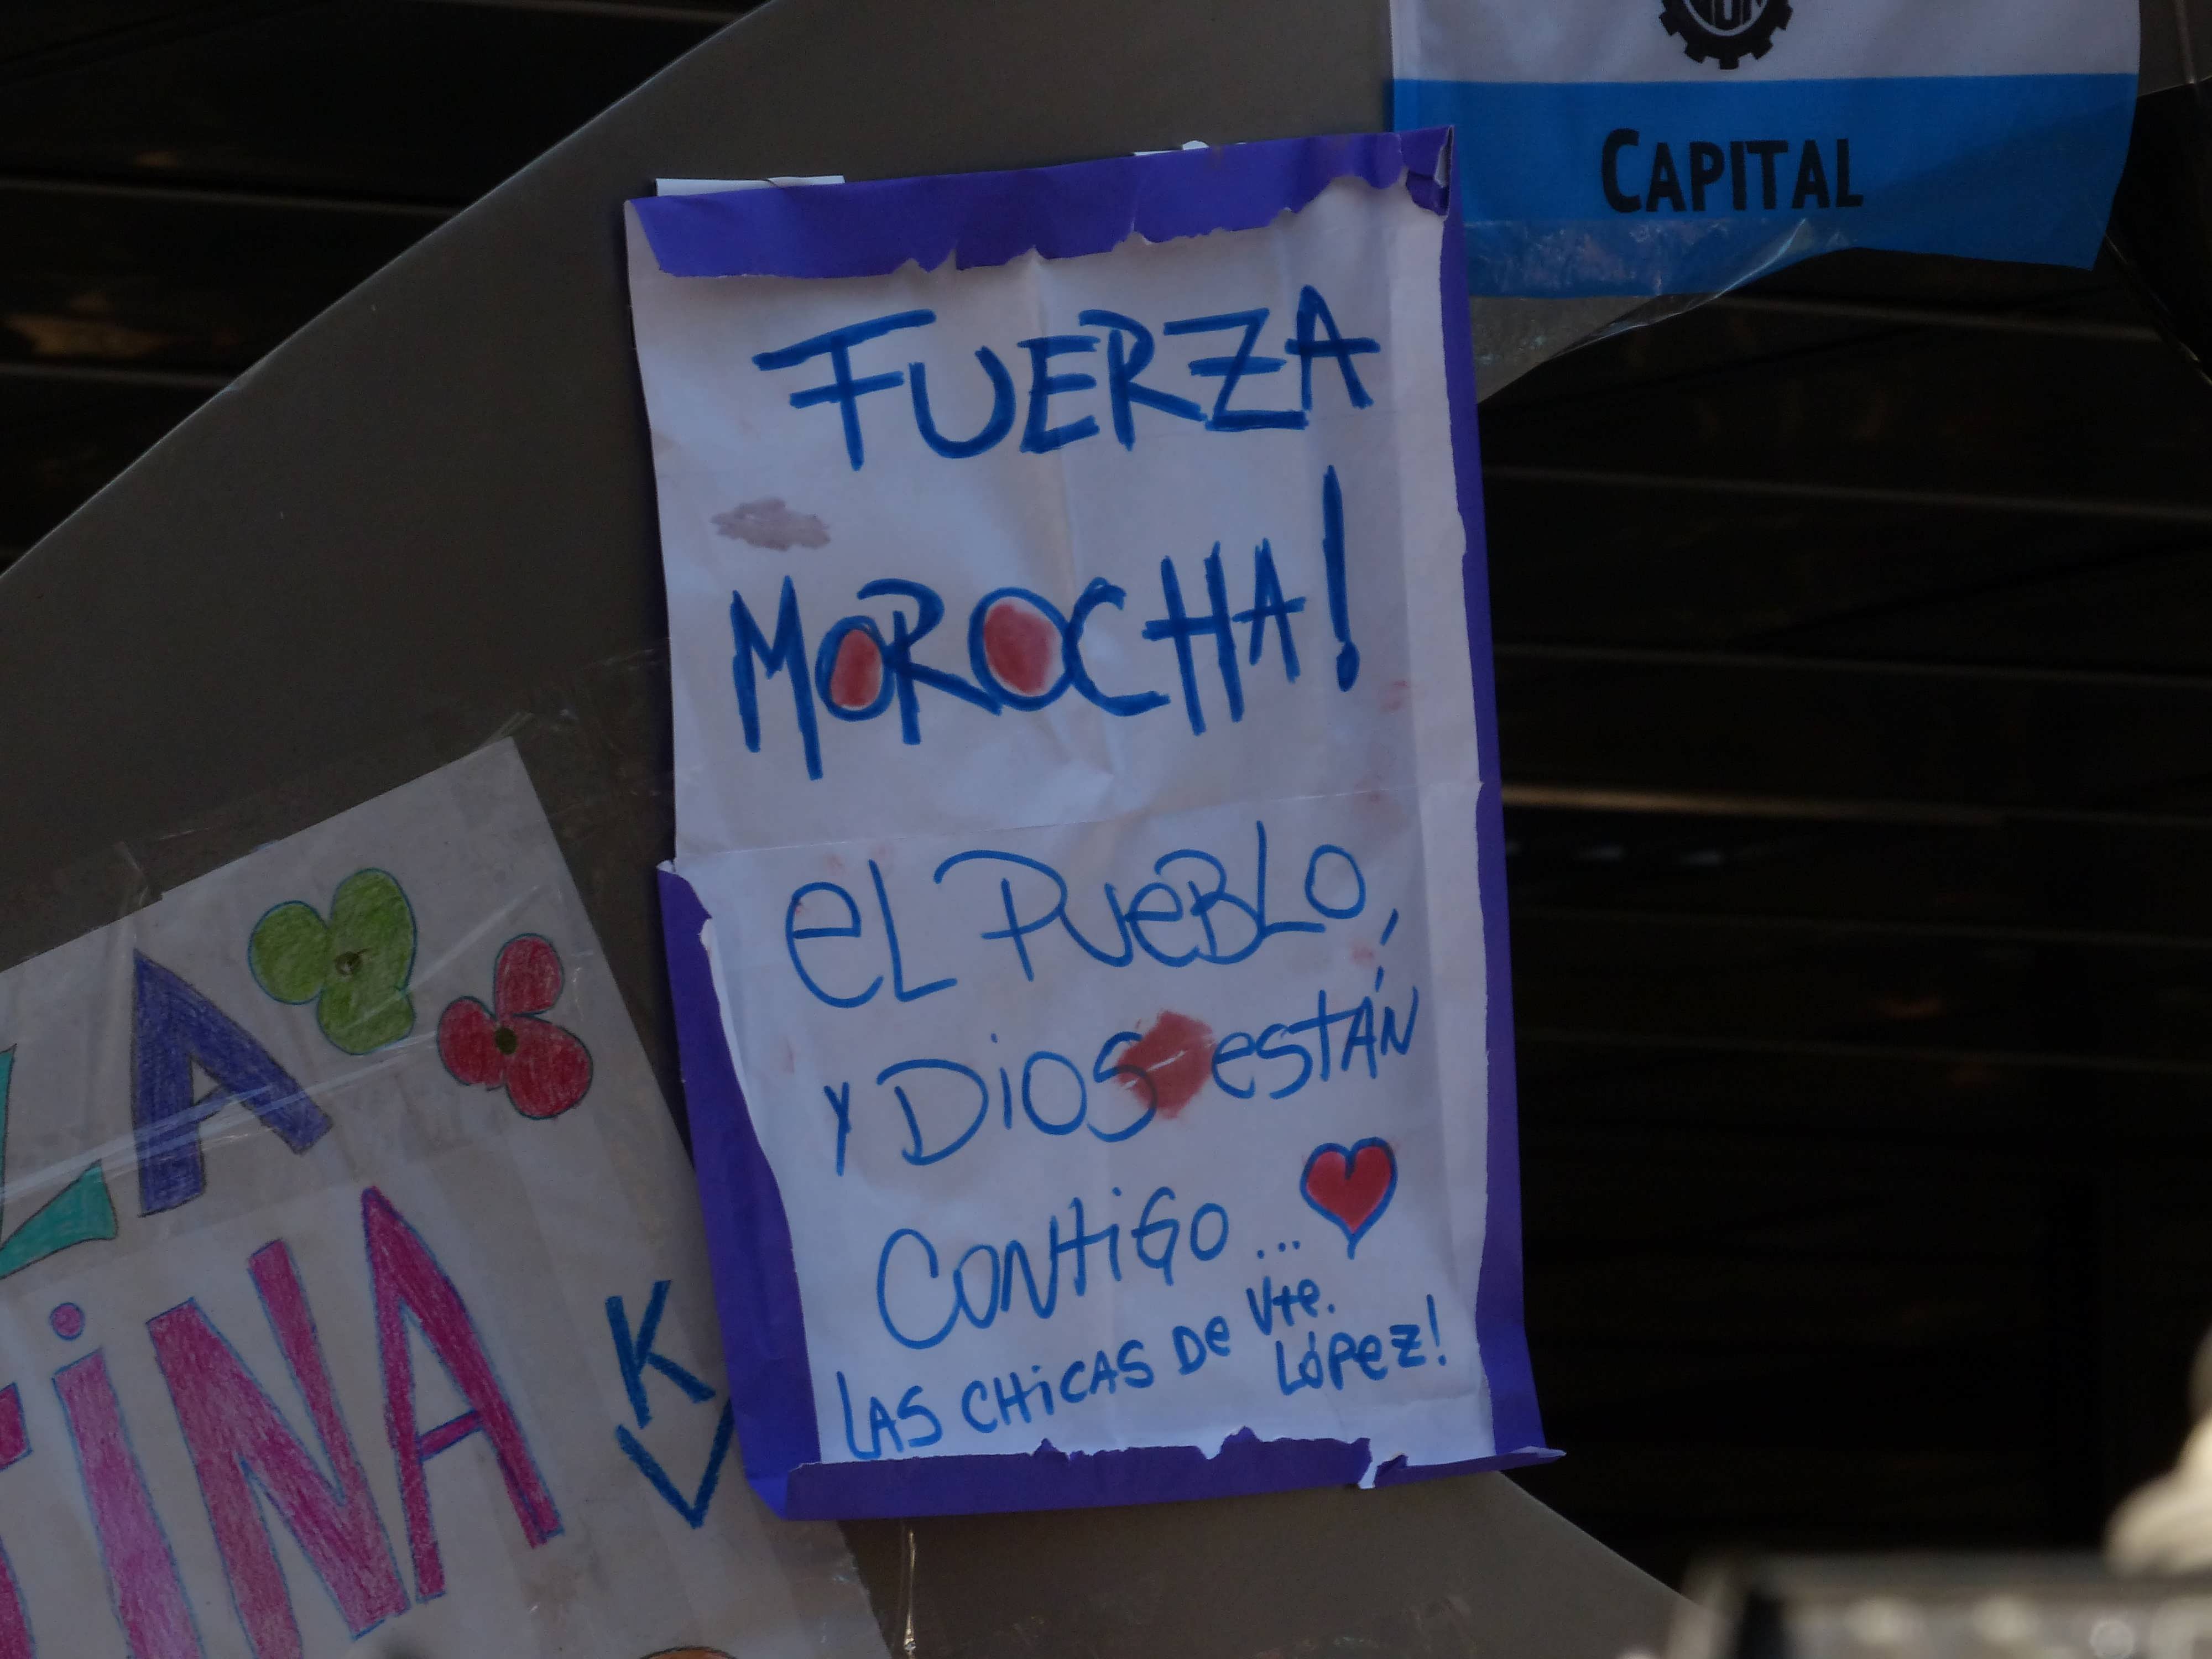 CAPITAL
FUERZA
MOROCHA!
eL PUeBLO,
y DiOS estÁN
CONtiGO...
LAS CHiCAS De Vte.
LóPez!
LA
TiNA
K
V